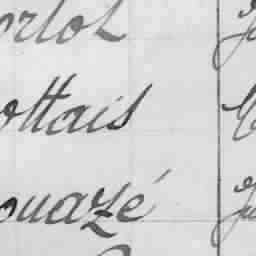 orlot
ottais
ouazé